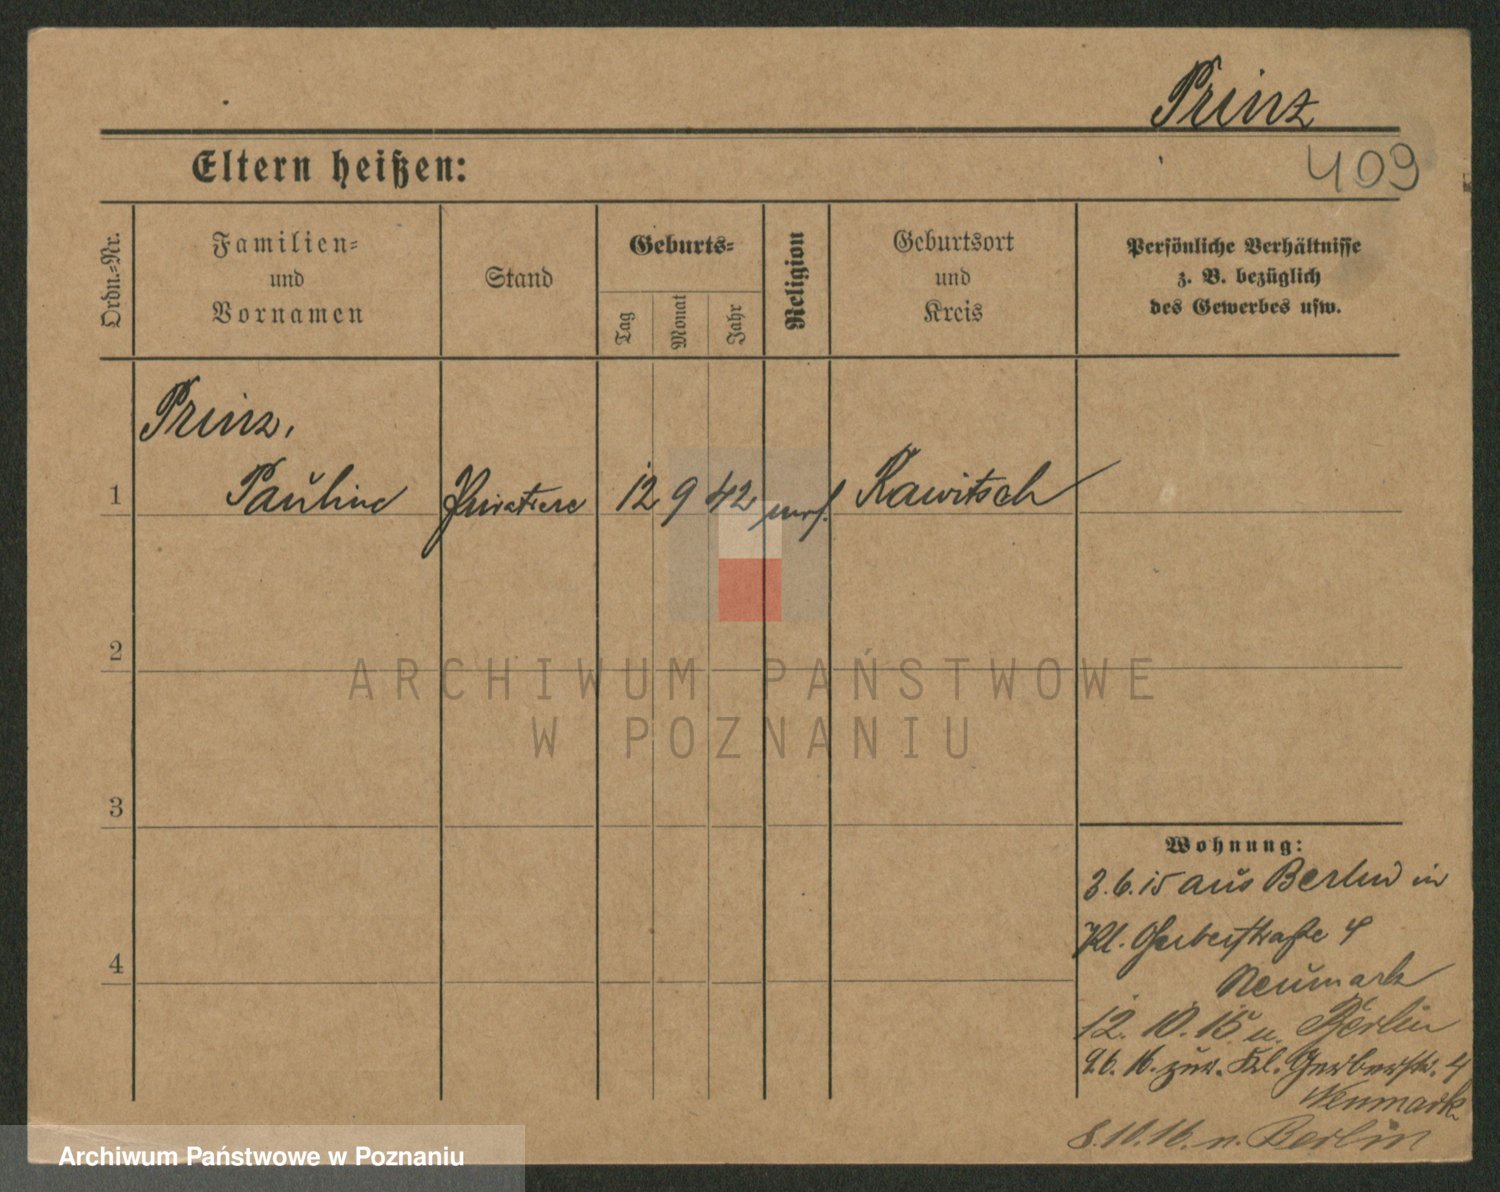 Prinz
409
Eltern heißen:
Ordn.-Nr.
Familien- und Vornamen
Stand
Geburts-
Tag
Monat
Jahr
Religion
Geburtsort und Kreis
Persönliche Verhältnisse z. B. bezüglich des Gewerbes usw.
Prinz,
1 Pauline Privatiere 12 9 42 mos. Rawitsch
2
3
4
Wohnung:
3.6.15 aus Berlin in
Kl. Gerberstraße 4
Neumark
12. 10. 15 n. Berlin
9.6.16. zur. Kl. Gerberstr. 4
Neumark
8.10.16. n. Berlin
ARCHIWUM PAŃSTWOWE
W POZNANIU
Archiwum Państwowe w Poznaniu